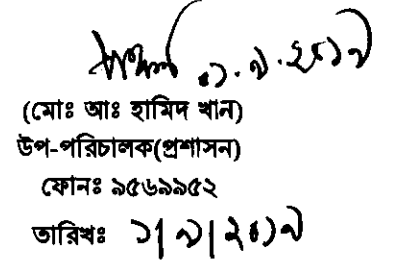 ০১.৯.২০১৯
(মোঃ আঃ হামিদ খান)
উপ-পরিচালক(প্রশাসন)
ফোনঃ ৯৫৬৯৯৫২
তারিখঃ ১|৯|২০১৯